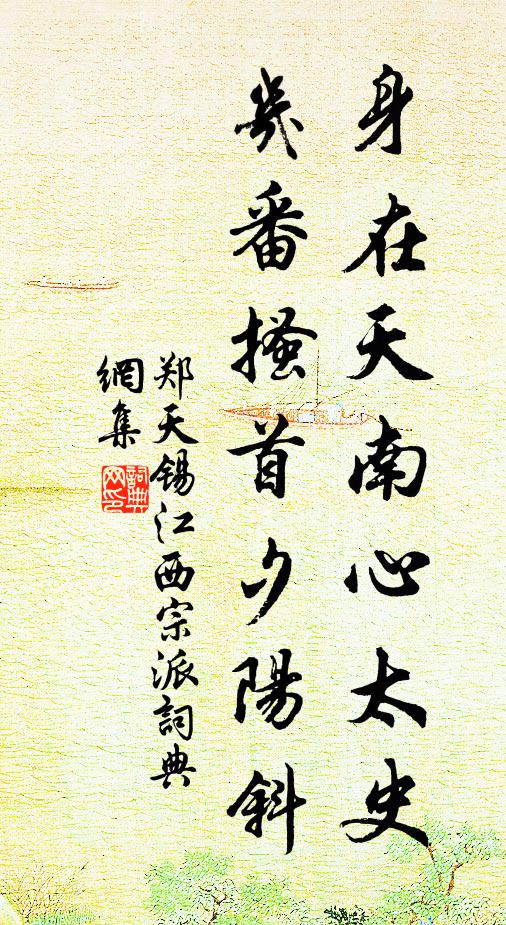 身在天南心太史
幾番搔首夕陽斜
郑天锡江西宗派詞典
網集
詞典
网印